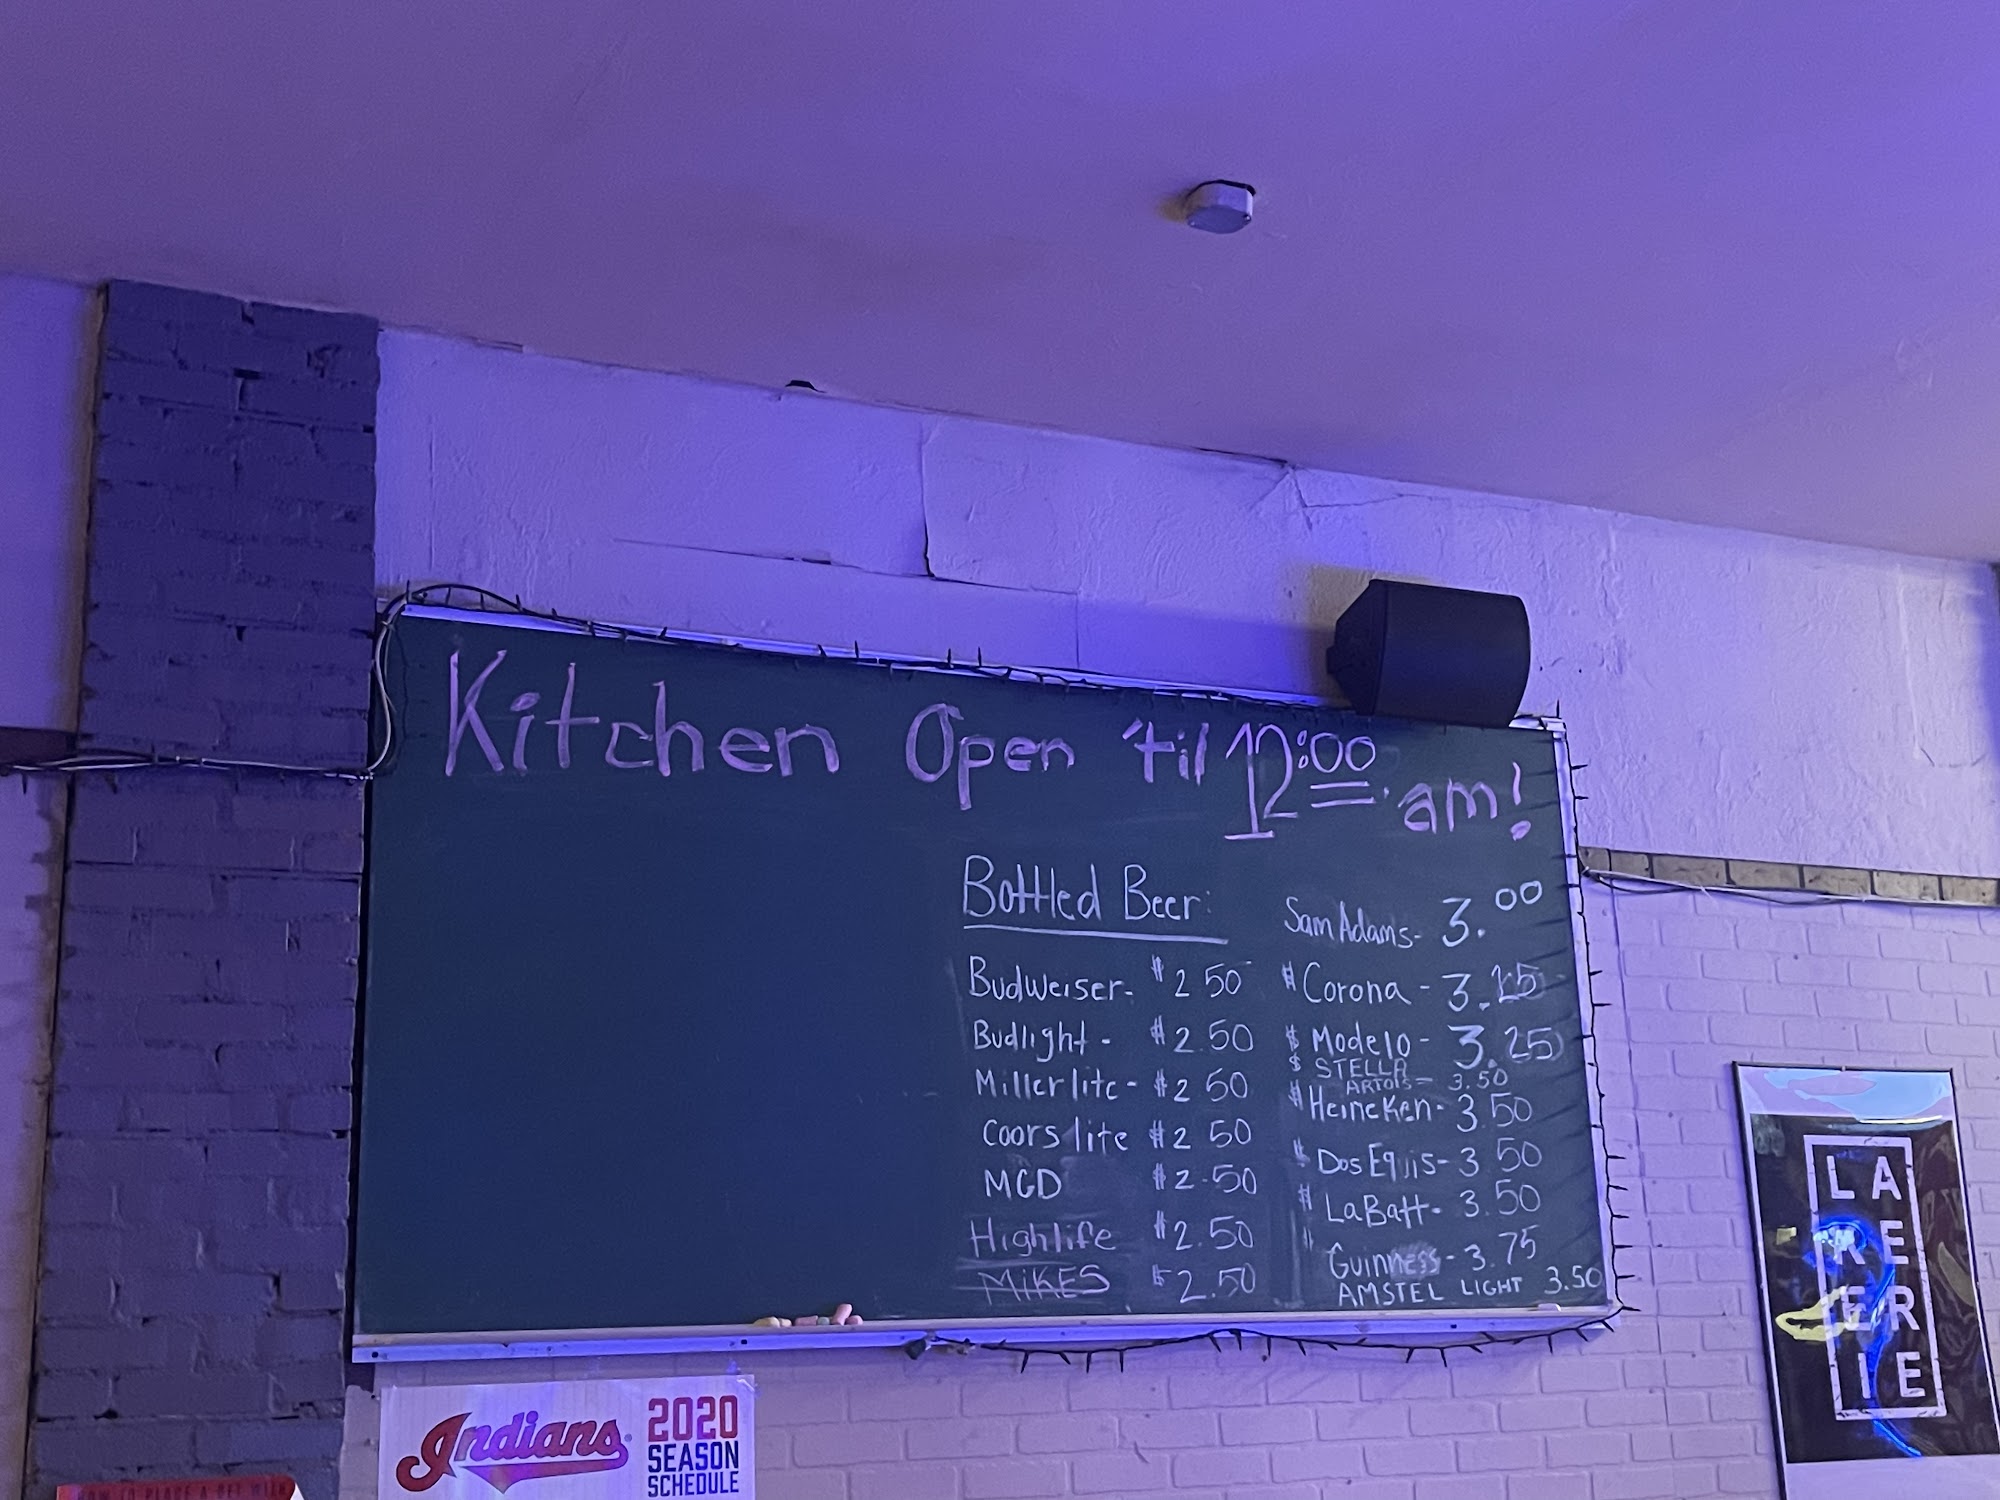 Kitchen Open 'til 12:00 am!
Bottled Beer:
Budweiser- $2 50
Budlight- $2.50
Millerlite- $2 50
Coors lite $2 50
MGD $2.50
Highlife $2.50
MIKES $2.50
Sam Adams- 3.00
$Corona - 3.25
$ Modelo- 3.25
$ STELLA
ARTOIS- 3.50
$Heineken- 3.50
$ Dos Equis- 3 50
$ LaBatt- 3.50
" Guinness- 3.75
AMSTEL LIGHT 3.50
LA
KE
ER
IE
Indians
2020
SEASON
SCHEDULE